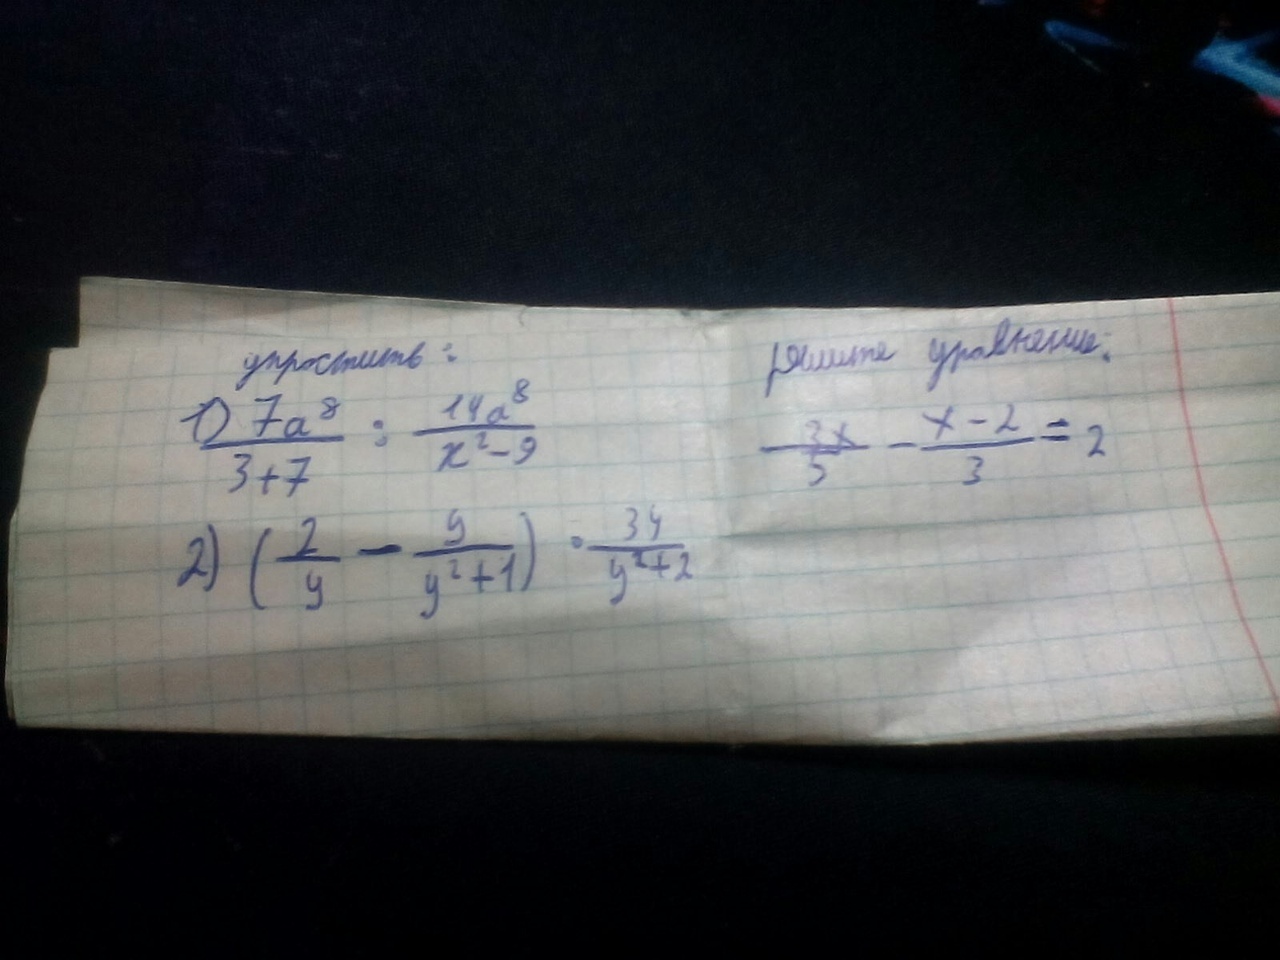 упростить:
1) 7a⁸/3+7 : 14a⁸/x²-9
2) (2/y - y/y²+1) · 3y/y²+2
решите уравнение:
3x/5 - x-2/3 = 2